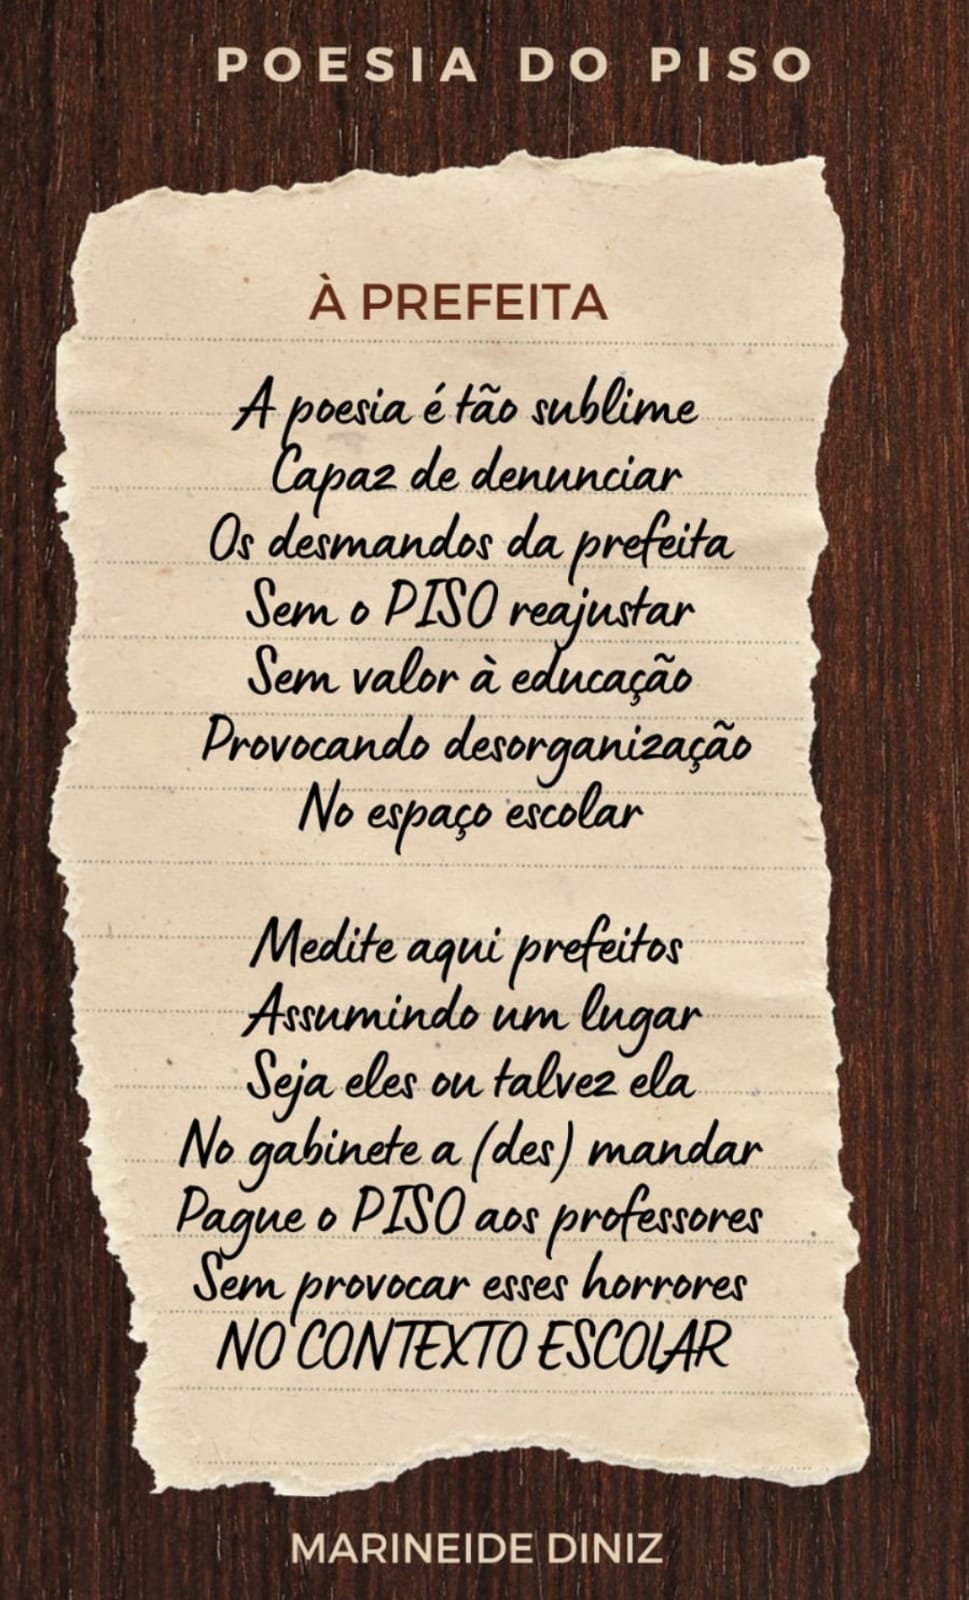 POESIA DO PISO
À PREFEITA
A poesia é tão sublime
Capaz de denunciar
Os desmandos da prefeita
Sem o PISO reajustar
Sem valor à educação
Provocando desorganização
No espaço escolar
Medite aqui prefeitos
Assumindo um lugar
Seja eles ou talvez ela
No gabinete a (des) mandar
Pague o PISO aos professores
Sem provocar esses horrores
NO CONTEXTO ESCOLAR
MARINEIDE DINIZ